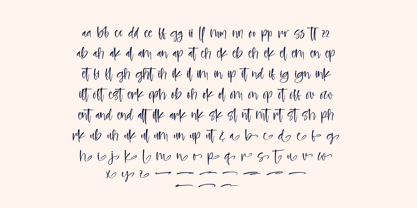 aa bb cc dd ee ff gg ii ll mm nn oo pp rr ss tt zz
ab ah ak al am an ap at ch ck eb eh ek el em en ep
et fi fl gh ght ih ik il im in ip it nd if ig ign ink
ult olt est erk eph ob oh ok ol om on op ot off ov ow
ent and end alt ilk ark nk sk sl nt mt rt st sh ph
rk ub uh uk ul um un up ut & a b c d e f g
h i j k l m n o p q r s t u v w
x y z